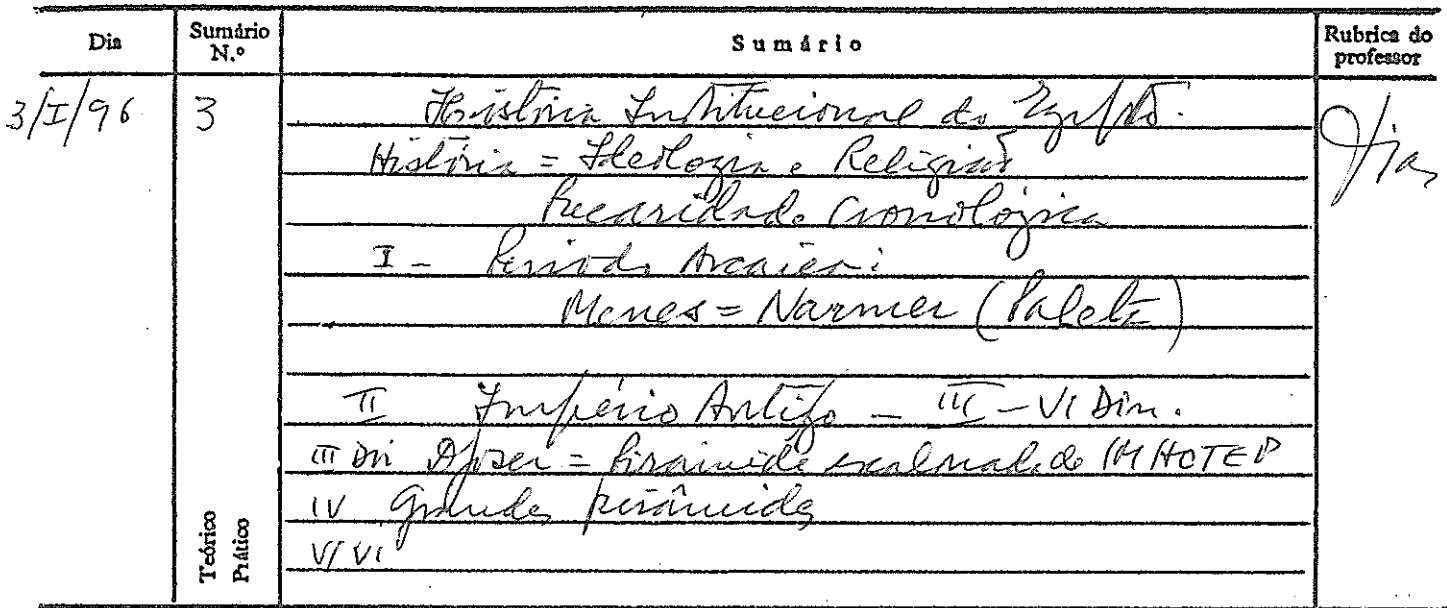 Dia Sumário N.º Sumário Rubrica do professor
3/I/96 3 História Institucional do Egipto.
História = Ideologia e Religião
Precaridade Cronológica
I - Período Arcaico:
Menes = Narmer (Paleta)
II Império Antigo - III - VI Din.
III Din Djoser = Pirâmide escalonada de IMHOTEP
IV Grandes pirâmides
V/VI
Teórico
Prático